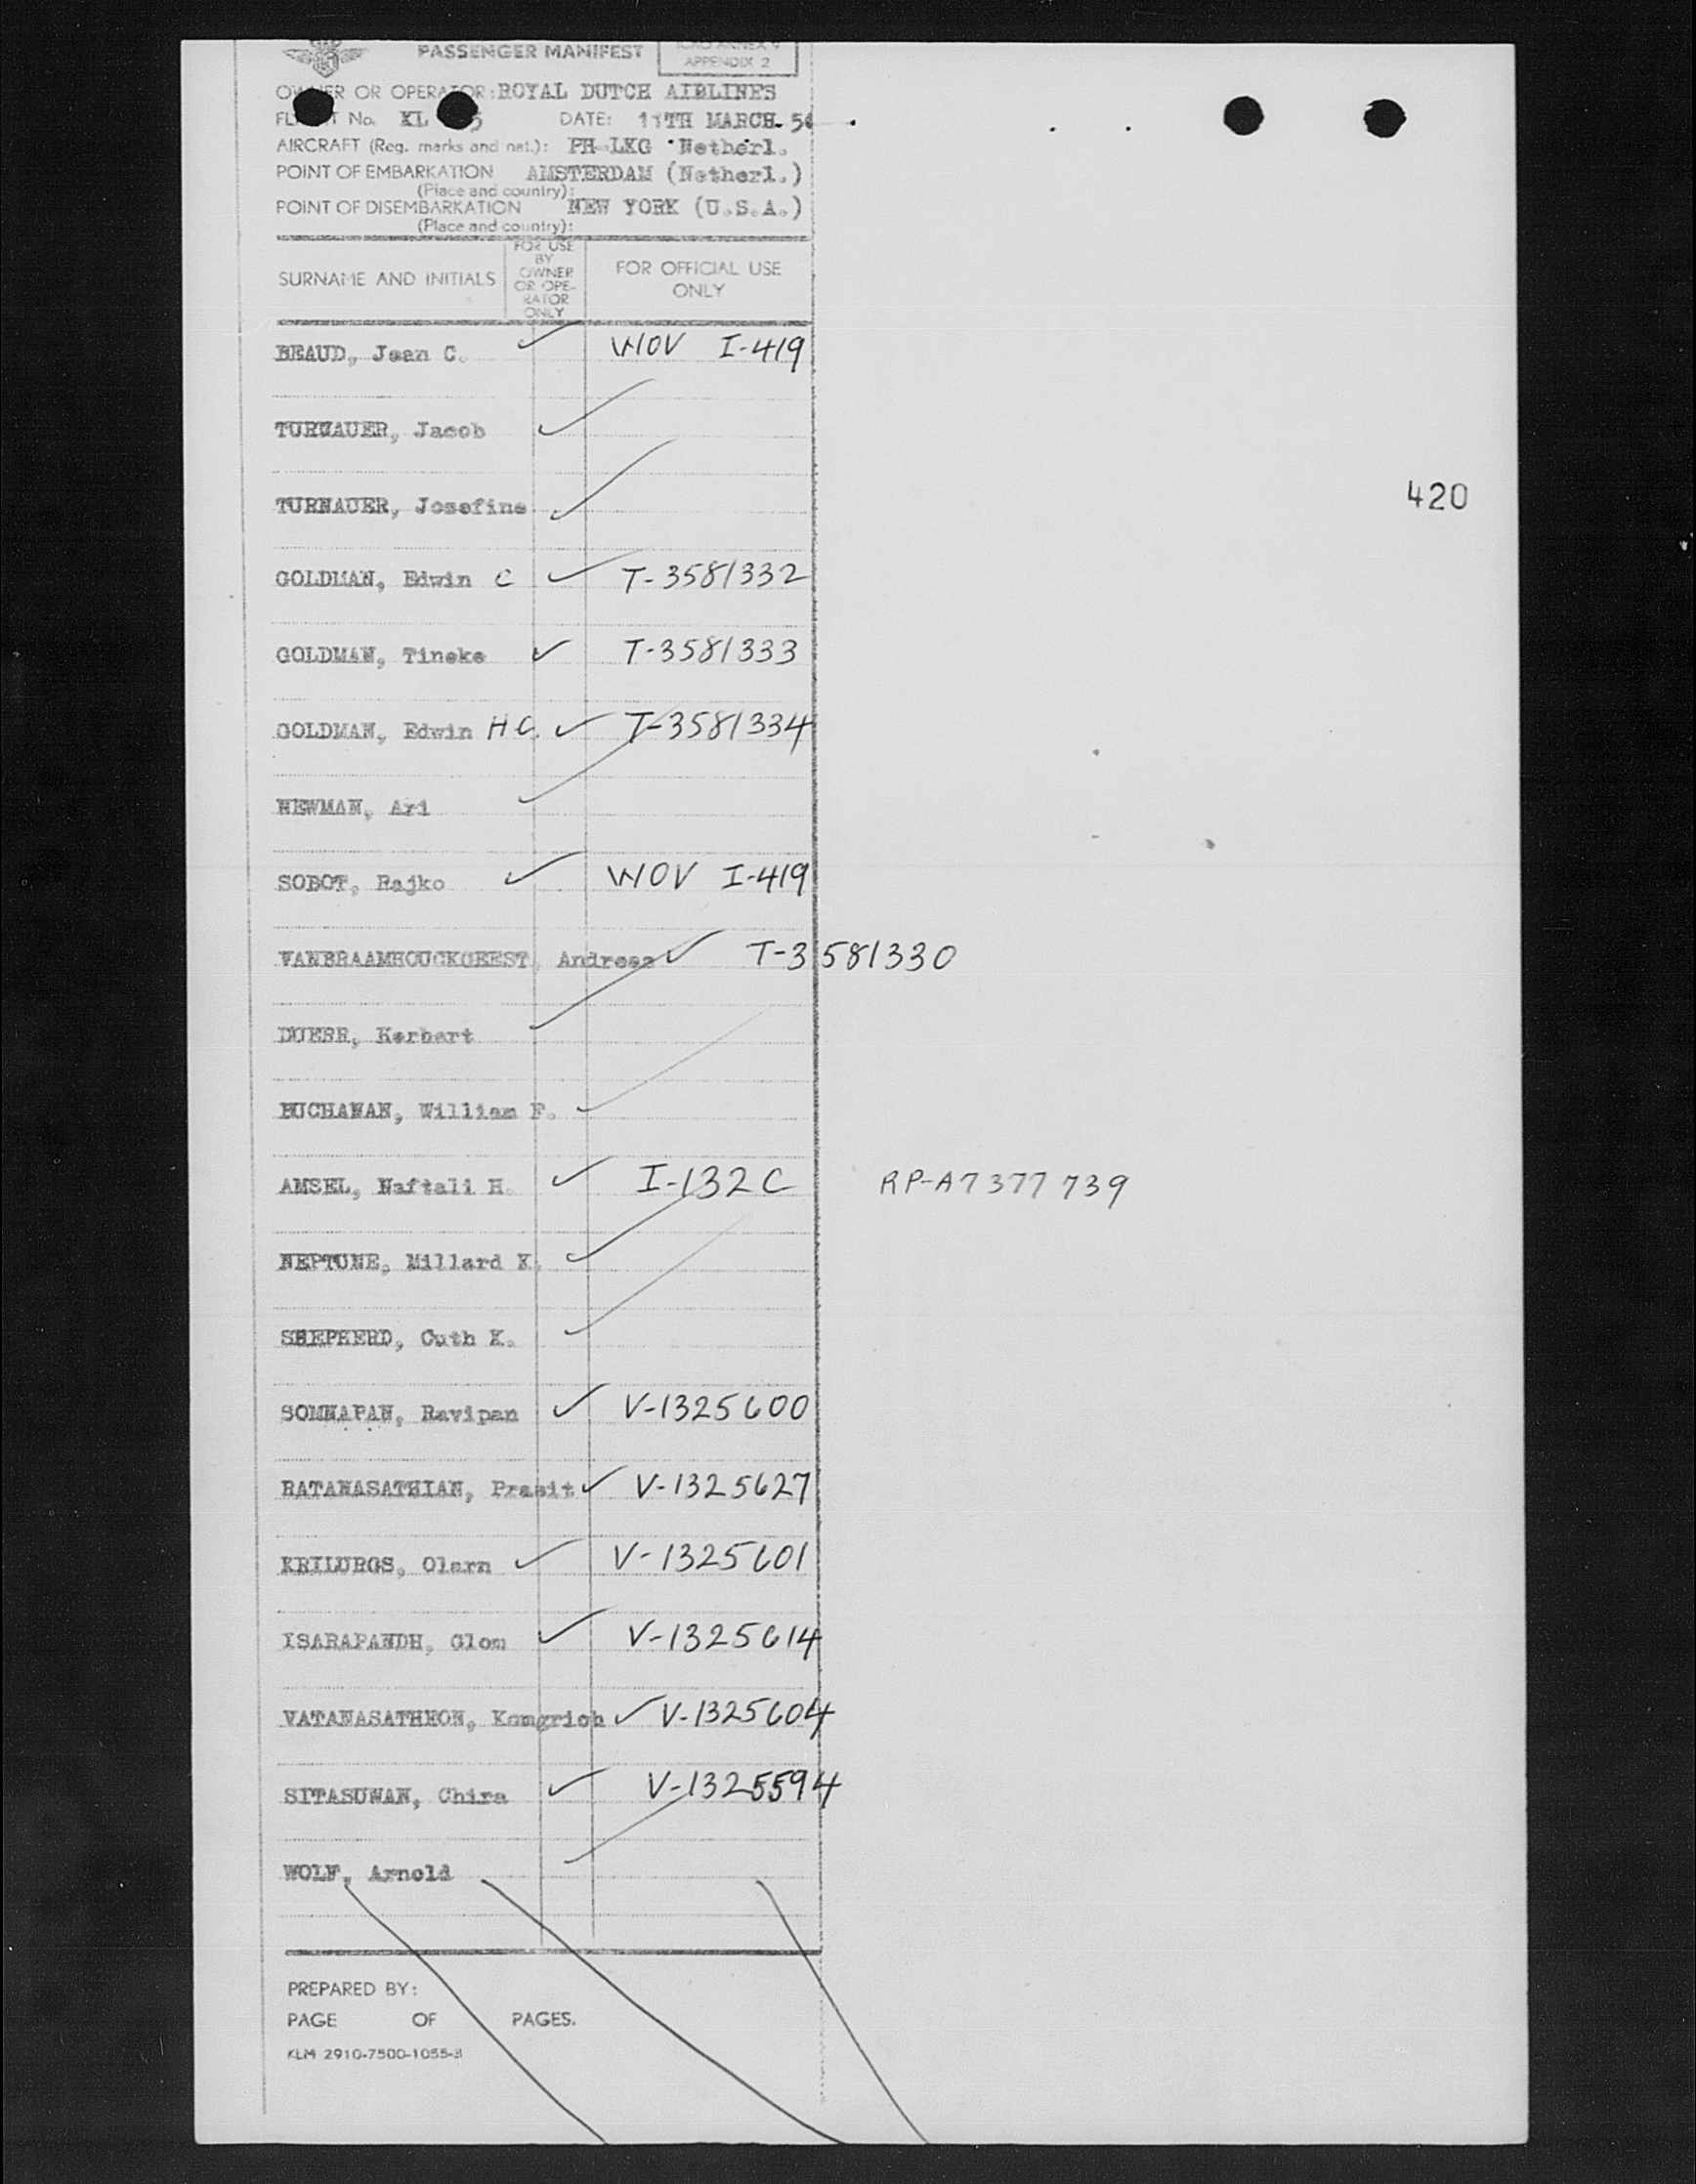 PASSENGER MANIFEST
ICAO ANNEX 9
APPENDIX 2
OWNER OR OPERATOR: ROYAL DUTCH AIRLINES
FLIGHT No. KL 5 DATE: 11TH MARCH. 56
AIRCRAFT (Reg. marks and nat.): PH-LKG Netherl.
POINT OF EMBARKATION AMSTERDAM (Netherl.)
(Place and country):
POINT OF DISEMBARKATION NEW YORK (U.S.A.)
(Place and country):
SURNAME AND INITIALS
FOR USE
BY
OWNER
OR OPE-
RATOR
ONLY
FOR OFFICIAL USE
ONLY
BEAUD, Jean C. WOV I-419
TURNAUER, Jacob
420
TURNAUER, Josefine
GOLDMAN, Edwin C T-3581332
GOLDMAN, Tineke T-3581333
GOLDMAN, Edwin H C. T-3581334
NEWMAN, Ari
SOBOT, Rajko WOV I-419
VANBRAAMHOUCKGEEST, Andreas T-3581330
DUERR, Herbert
BUCHANAN, William F.
AMSEL, Naftali H. I-132C RP-A7377739
NEPTUNE, Millard K.
SHEPHERD, Cuth K.
SOMNAPAN, Ravipan V-1325600
RATANASATHIAN, Prasit V-1325627
KRILURGS, Olarn V-1325601
ISARAPANDH, Glom V-1325614
VATANASATHEON, Komgrich V-1325604
SITASUWAN, Chira V-1325594
WOLF, Arnold
PREPARED BY:
PAGE OF PAGES.
KLM 2910-7500-1055-3